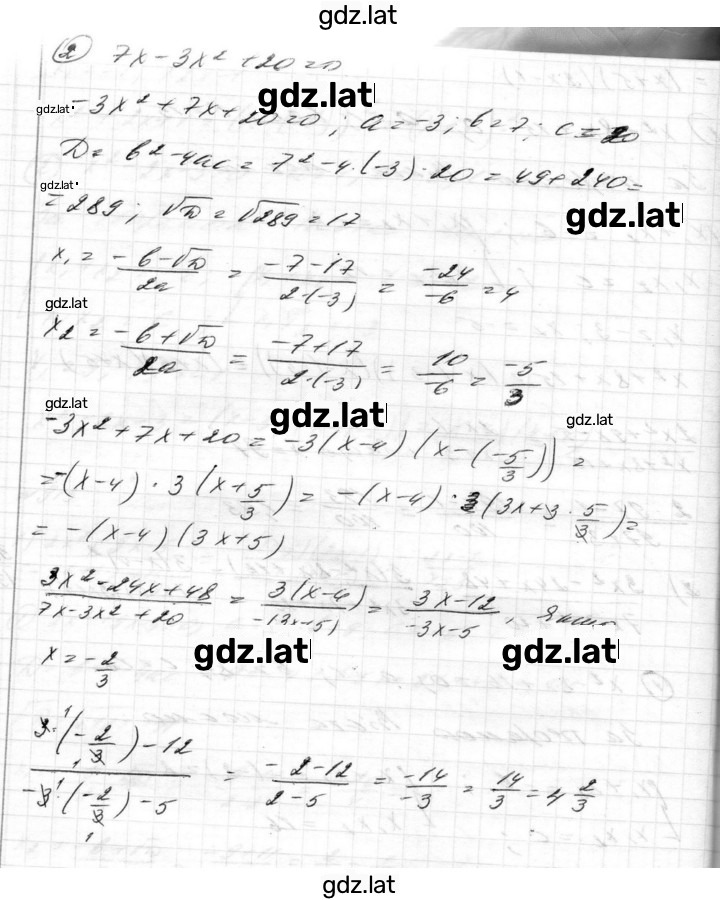 gdz.lat
2) 7x - 3x² + 20 = 0
gdz.lat
gdz.lat
-3x² + 7x + 20 = 0; a = -3; b = 7; c = 20
D = b² - 4ac = 7² - 4·(-3)·20 = 49 + 240 =
gdz.lat
gdz.lat
= 289; √D = √289 = 17
x₁ = (-b - √D)/2a = (-7 - 17)/(2·(-3)) = -24/-6 = 4
gdz.lat
x₂ = (-b + √D)/2a = (-7 + 17)/(2·(-3)) = 10/-6 = -5/3
gdz.lat
gdz.lat
gdz.lat
-3x² + 7x + 20 = -3(x - 4)(x - (-5/3)) =
= -(x - 4) · 3(x + 5/3) = -(x - 4) · (3x + 3 · 5/3) =
= -(x - 4)(3x + 5)
(3x² - 24x + 48)/(7x - 3x² + 20) = 3(x - 4)/-(3x + 5) = (3x - 12)/(-3x - 5), якщо
gdz.lat
gdz.lat
x = -2/3
(3·(-2/3) - 12)/(-3·(-2/3) - 5) = (-2 - 12)/(2 - 5) = -14/-3 = 14/3 = 4 2/3
gdz.lat